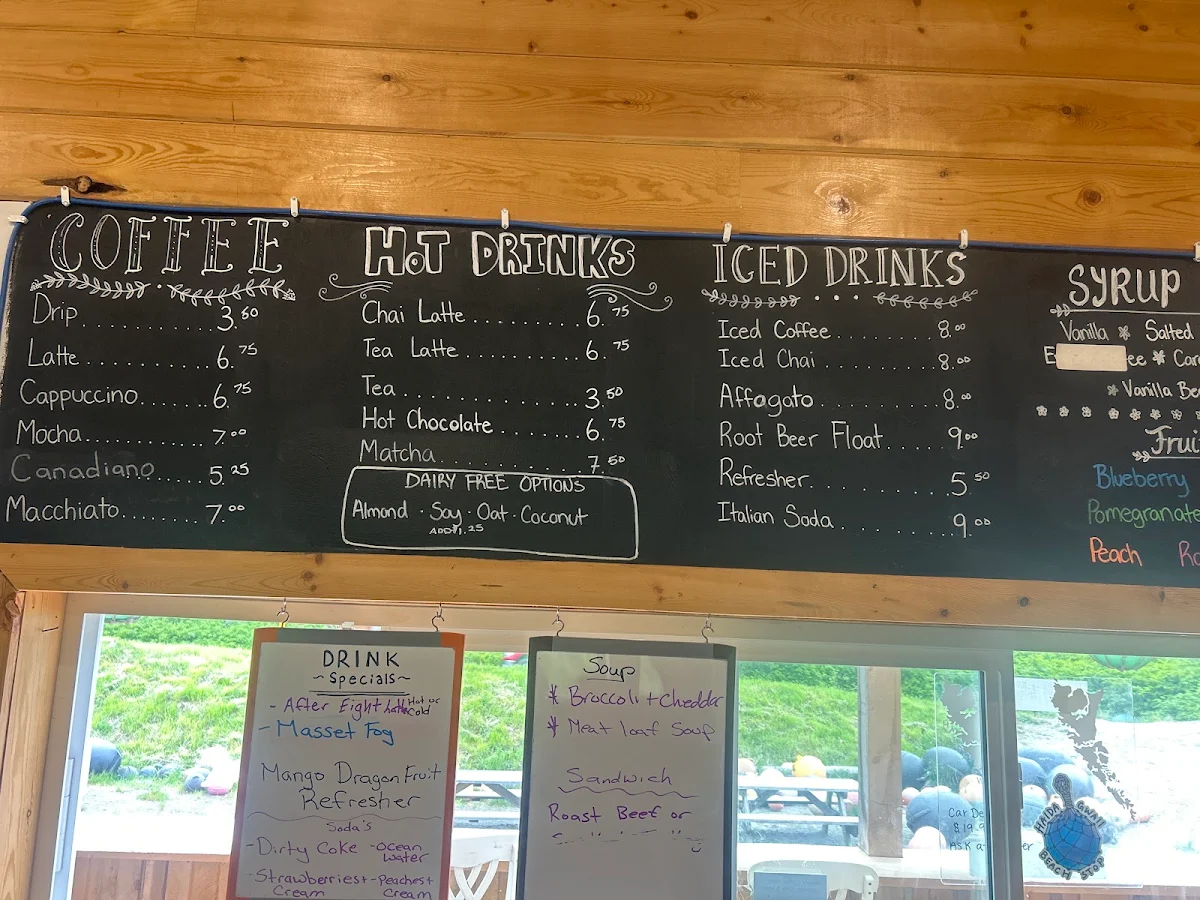 COFFEE
Drip.............3.50
Latte..............6.75
Cappuccino.......6.75
Mocha..............7.00
Canadiano........5.25
Macchiato........7.00
HOT DRINKS
Chai Latte..........6.75
Tea Latte..........6.75
Tea.................3.50
Hot Chocolate........6.75
Matcha..............7.50
DAIRY FREE OPTIONS
Almond · Soy · Oat · Coconut
ADD $1.25
ICED DRINKS
Iced Coffee..........8.00
Iced Chai............8.00
Affagato............8.00
Root Beer Float......9.00
Refresher............5.50
Italian Soda.........9.00
SYRUP
Vanilla * Salted
E ee * Car
* Vanilla Be
Frui
Blueberry
Pomegranate
Peach
DRINK
~Specials~
- After Eight Latte Hot or Cold
- Masset Fog
Mango Dragon Fruit
Refresher
Soda's
- Dirty Coke - ocean water
- Strawberries + Cream - Peaches + Cream
Soup
* Broccoli + Cheddar
* Meat loaf Soup
Sandwich
Roast Beef or
HAIDA GWAII
BEACH STOP